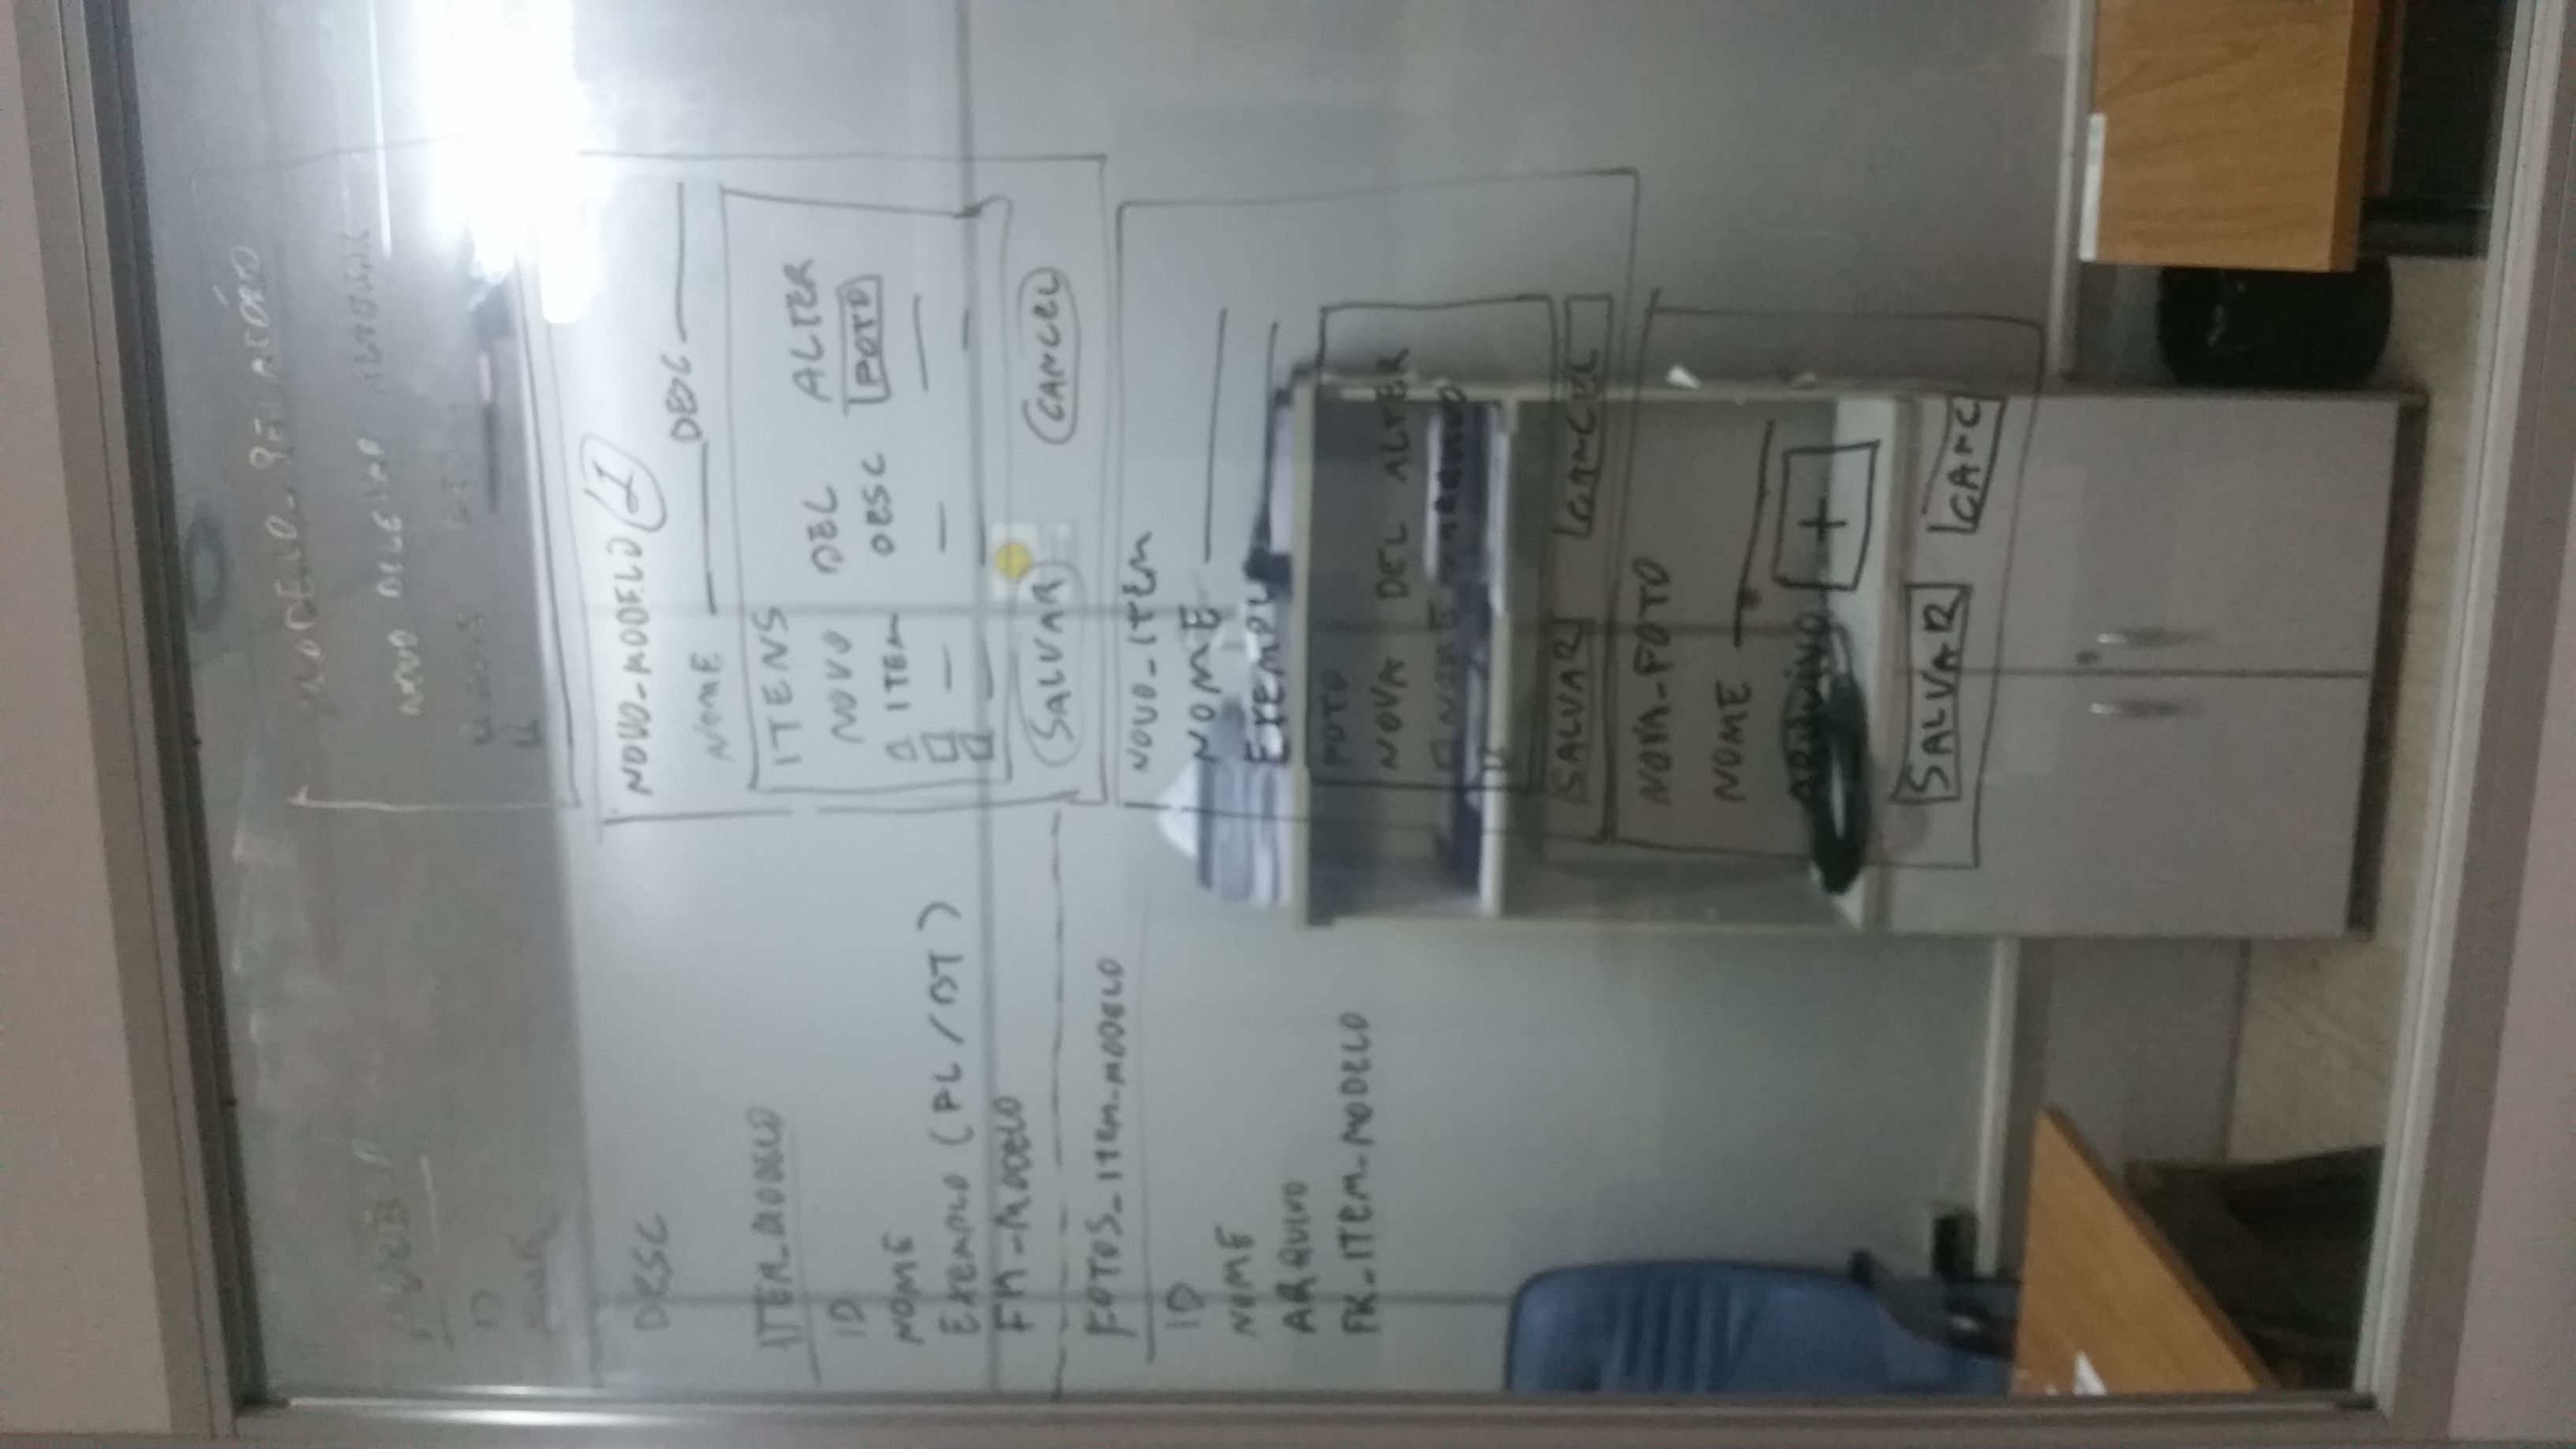 MODELO
ID
NOME
DESC
ITEM_MODELO
ID
NOME
EXEMPLO (PL / BT)
FK_MODELO
FOTOS_ITEM_MODELO
ID
NOME
ARQUIVO
FK_ITEM_MODELO
MODELO_RELATÓRIO
NOVO DELETAR ALTERAR
NOVO_MODELO I
NOME DESC
ITENS
NOVO DEL ALTER
ITEM DESC FOTO
SALVAR CANCEL
NOVO_ITEM
NOME
EXEMPLO
FOTO
NOVA DEL ALTER
NOME ARQUIVO
SALVAR CANCEL
NOVA_FOTO
NOME
ARQUIVO +
SALVAR CANC